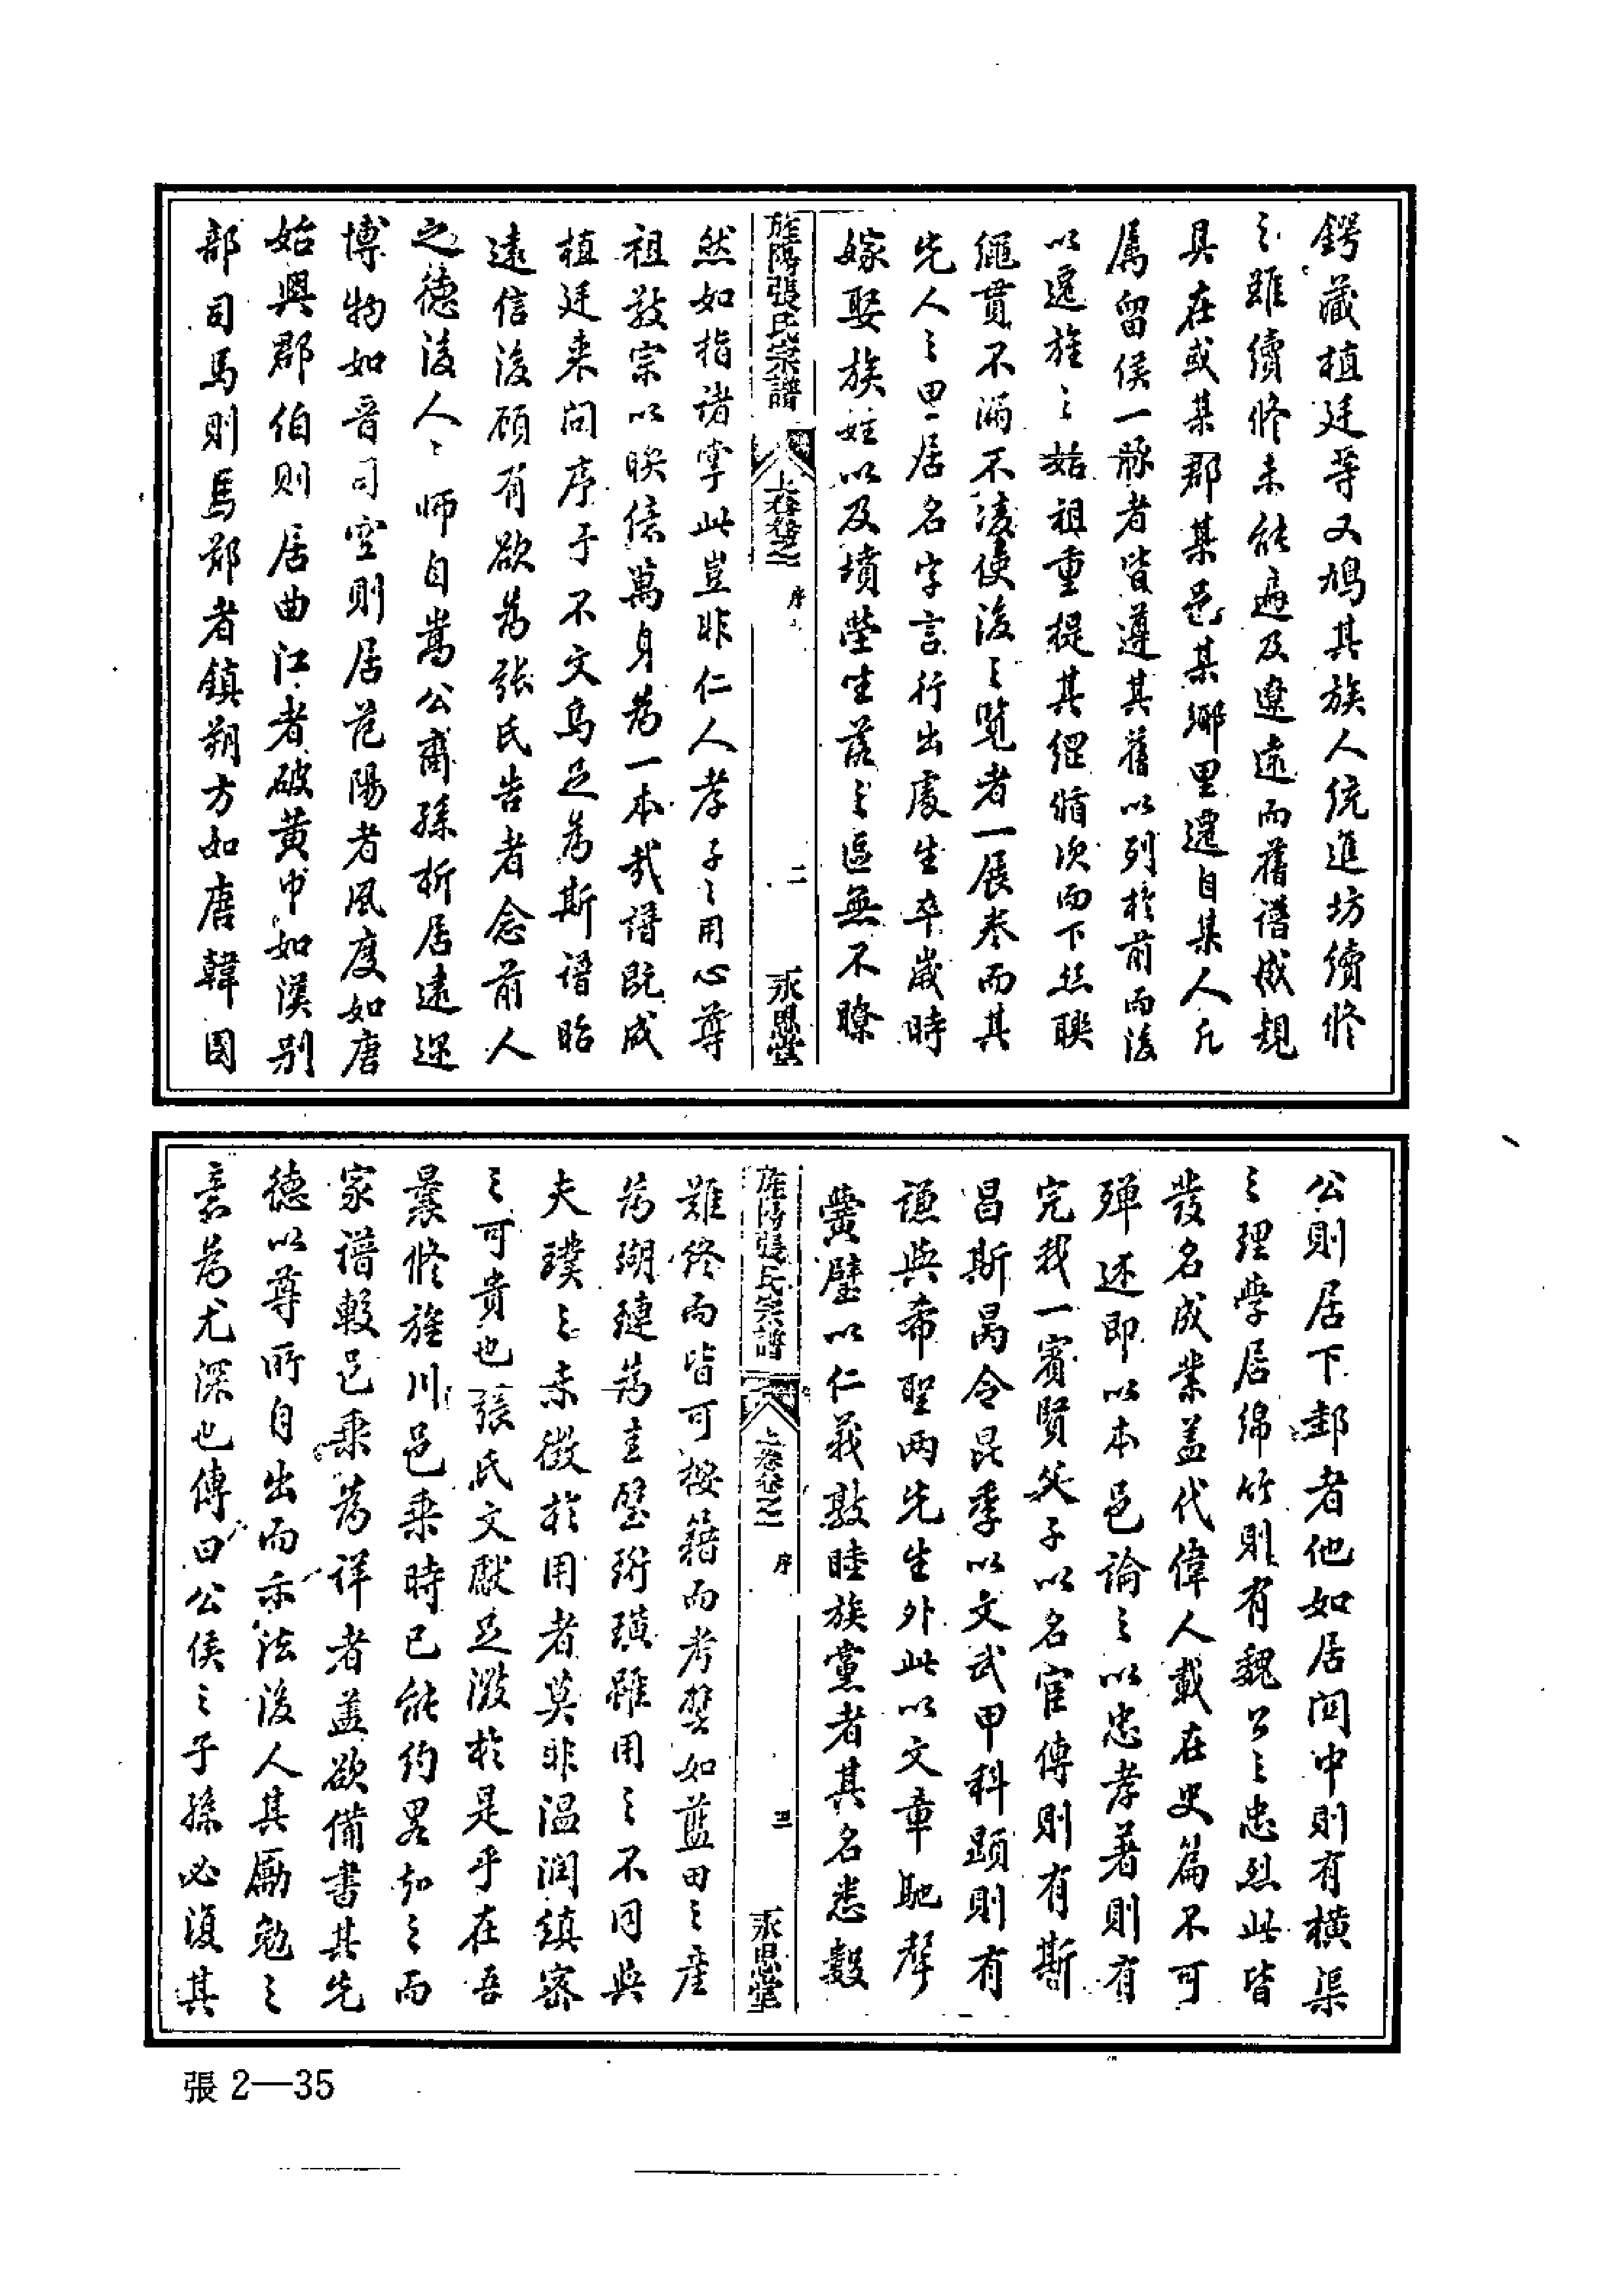 鍔藏植廷等又鳩其族人統進坊續修
之雖續修未能遍及遼遠而舊譜成規
具在或某郡某邑某鄉里遷自某人凡
屬留侯一脉者皆遵其舊以列於前而後
以遷旌之始祖重提其綱循次而下絲聯
繩貫不漏不凌使後之覽者一展卷而其
先人之里居名字言行出處生卒歲時
嫁娶族姓以及墳塋坐落之區無不瞭
旌陽張氏宗譜 上卷卷之一 序 二 永思堂
然如指諸掌此豈非仁人孝子之用心尊
祖敬宗以昳億萬身為一本哉譜既成
植廷來問序于不文烏足為斯譜昭
遠信後顧有欲為張氏告者念前人
之德後人之師自嵩公裔孫析居遠邇
博物如晉司空則居范陽者風度如唐
始興郡伯則居曲江者破黃巾如漢別
部司馬則馬鄒者鎮朔方如唐韓國
公則居下邽者他如居関中則有橫渠
之理學居綿竹則有魏公之忠烈此皆
發名成業蓋代偉人載在史篇不可
殫述即以本邑論之以忠孝著則有
完我一賓賢父子以名宦傳則有斯
昌斯禺令昆季以文武甲科顕則有
謙與希聖兩先生外此以文章馳聲
黌璧以仁義敦睦族黨者其名悉數
旌陽張氏宗譜 上卷卷之一 序 三 永思堂
難終而皆可按籍而考譬如藍田之產
為瑚璉為圭璧珩璜雖用之不同與
夫璞之未徵於用者莫非温潤縝密
之可貴也張氏文獻足徵於是乎在吾
曩修旌川邑乘時已能約畧知之而
家譜較邑乘為詳者蓋欲備書其先
德以尊所自出而示法後人其勵勉之
意為尤深也傳曰公侯之子孫必復其
張2—35